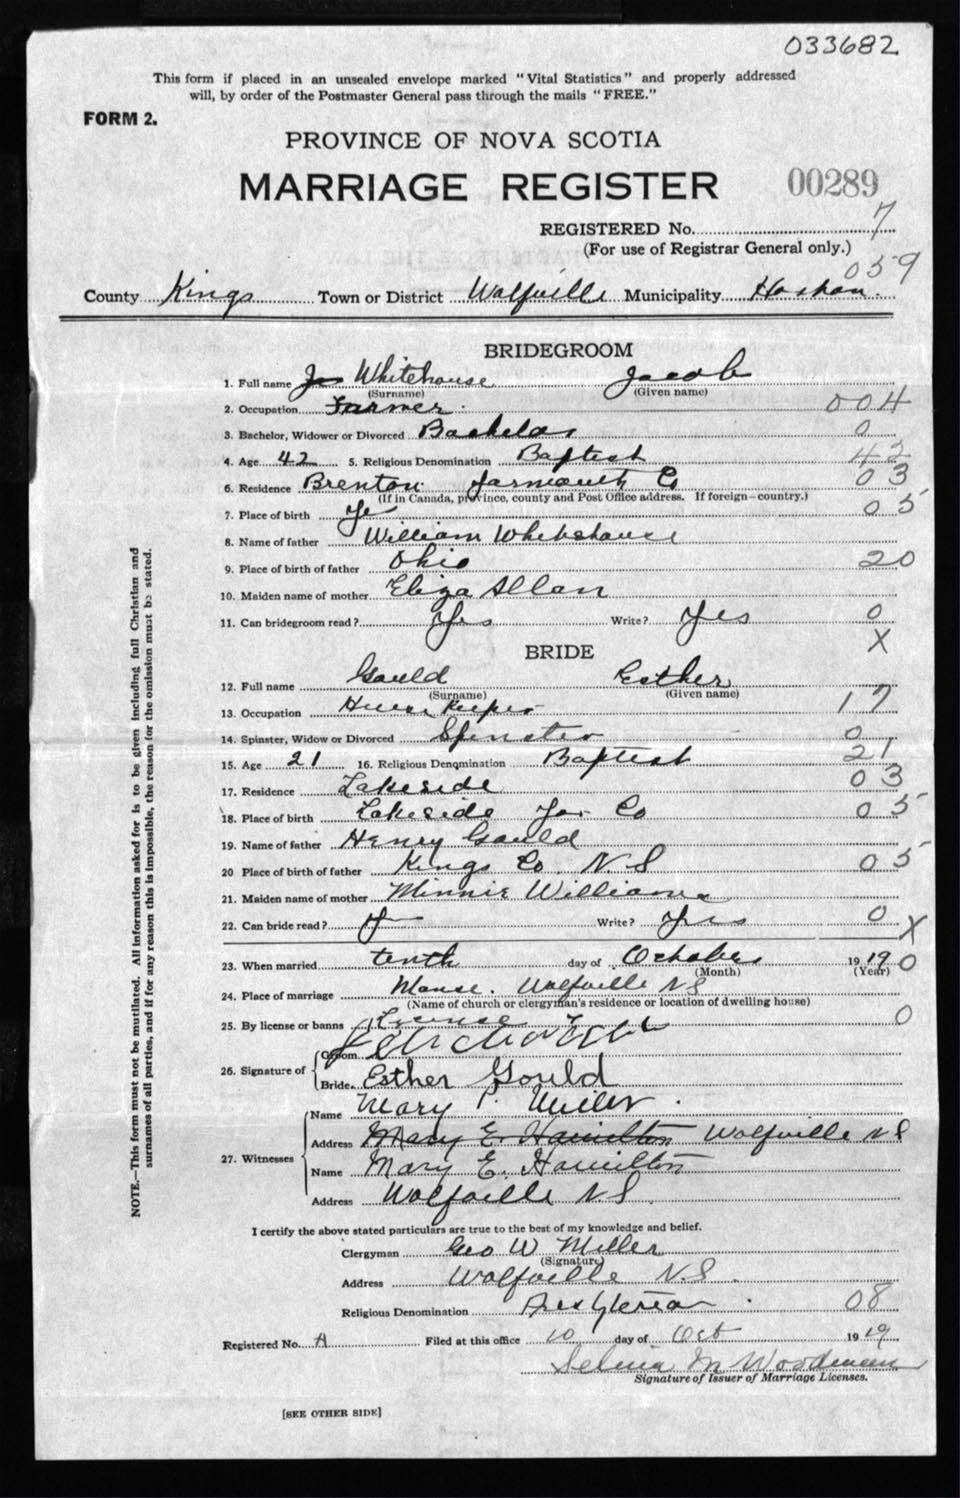 033682
This form if placed in an unsealed envelope marked "Vital Statistics" and properly addressed
will, by order of the Postmaster General pass through the mails "FREE."
FORM 2.
PROVINCE OF NOVA SCOTIA
MARRIAGE REGISTER 00289
REGISTERED No. 7
(For use of Registrar General only.)
059
County Kings Town or District Wolfville Municipality
BRIDEGROOM
1. Full name Whitehouse Jacob
(Surname) (Given name)
2. Occupation Farmer 004
3. Bachelor, Widower or Divorced Bachelor 0
4. Age 42 5. Religious Denomination Baptist 42
6. Residence Brenton Yarmouth Co 03
(If in Canada, province, county and Post Office address. If foreign—country.)
7. Place of birth 05
8. Name of father William Whitehouse
9. Place of birth of father Ohio 20
10. Maiden name of mother Eliza Allan
11. Can bridegroom read? Yes Write? Yes 0
X
BRIDE
12. Full name Gauld Esther
(Surname) (Given name)
13. Occupation House Keeper 17
14. Spinster, Widow or Divorced Spinster 0
15. Age 21 16. Religious Denomination Baptist 21
17. Residence Lakeside 03
18. Place of birth Lakeside Yar Co 05
19. Name of father Henry Gauld
20 Place of birth of father Kings Co. N.S 05
21. Maiden name of mother Minnie Williams
22. Can bride read? Write? Yes 0
X
23. When married tenth day of October 1919 0
(Month) (Year)
24. Place of marriage Manse. Wolfville NS
(Name of church or clergyman's residence or location of dwelling house)
25. By license or banns License 0
26. Signature of
Groom
Bride. Esther Gould
27. Witnesses
Name Mary P. Miller.
Address Mary E. Hamilton Wolfville NS
Name Mary E. Hamilton
Address Wolfville NS.
I certify the above stated particulars are true to the best of my knowledge and belief.
Clergyman Geo W Miller
(Signature)
Address Wolfville N.S.
Religious Denomination Presbyterian. 08
Registered No. A Filed at this office 10 day of Oct 1919
Selina M Woodman
Signature of Issuer of Marriage Licenses.
[SEE OTHER SIDE]
NOTE.—This form must not be mutilated. All information asked for is to be given including full Christian and
surnames of all parties, and if for any reason this is impossible, the reason for the omission must be stated.